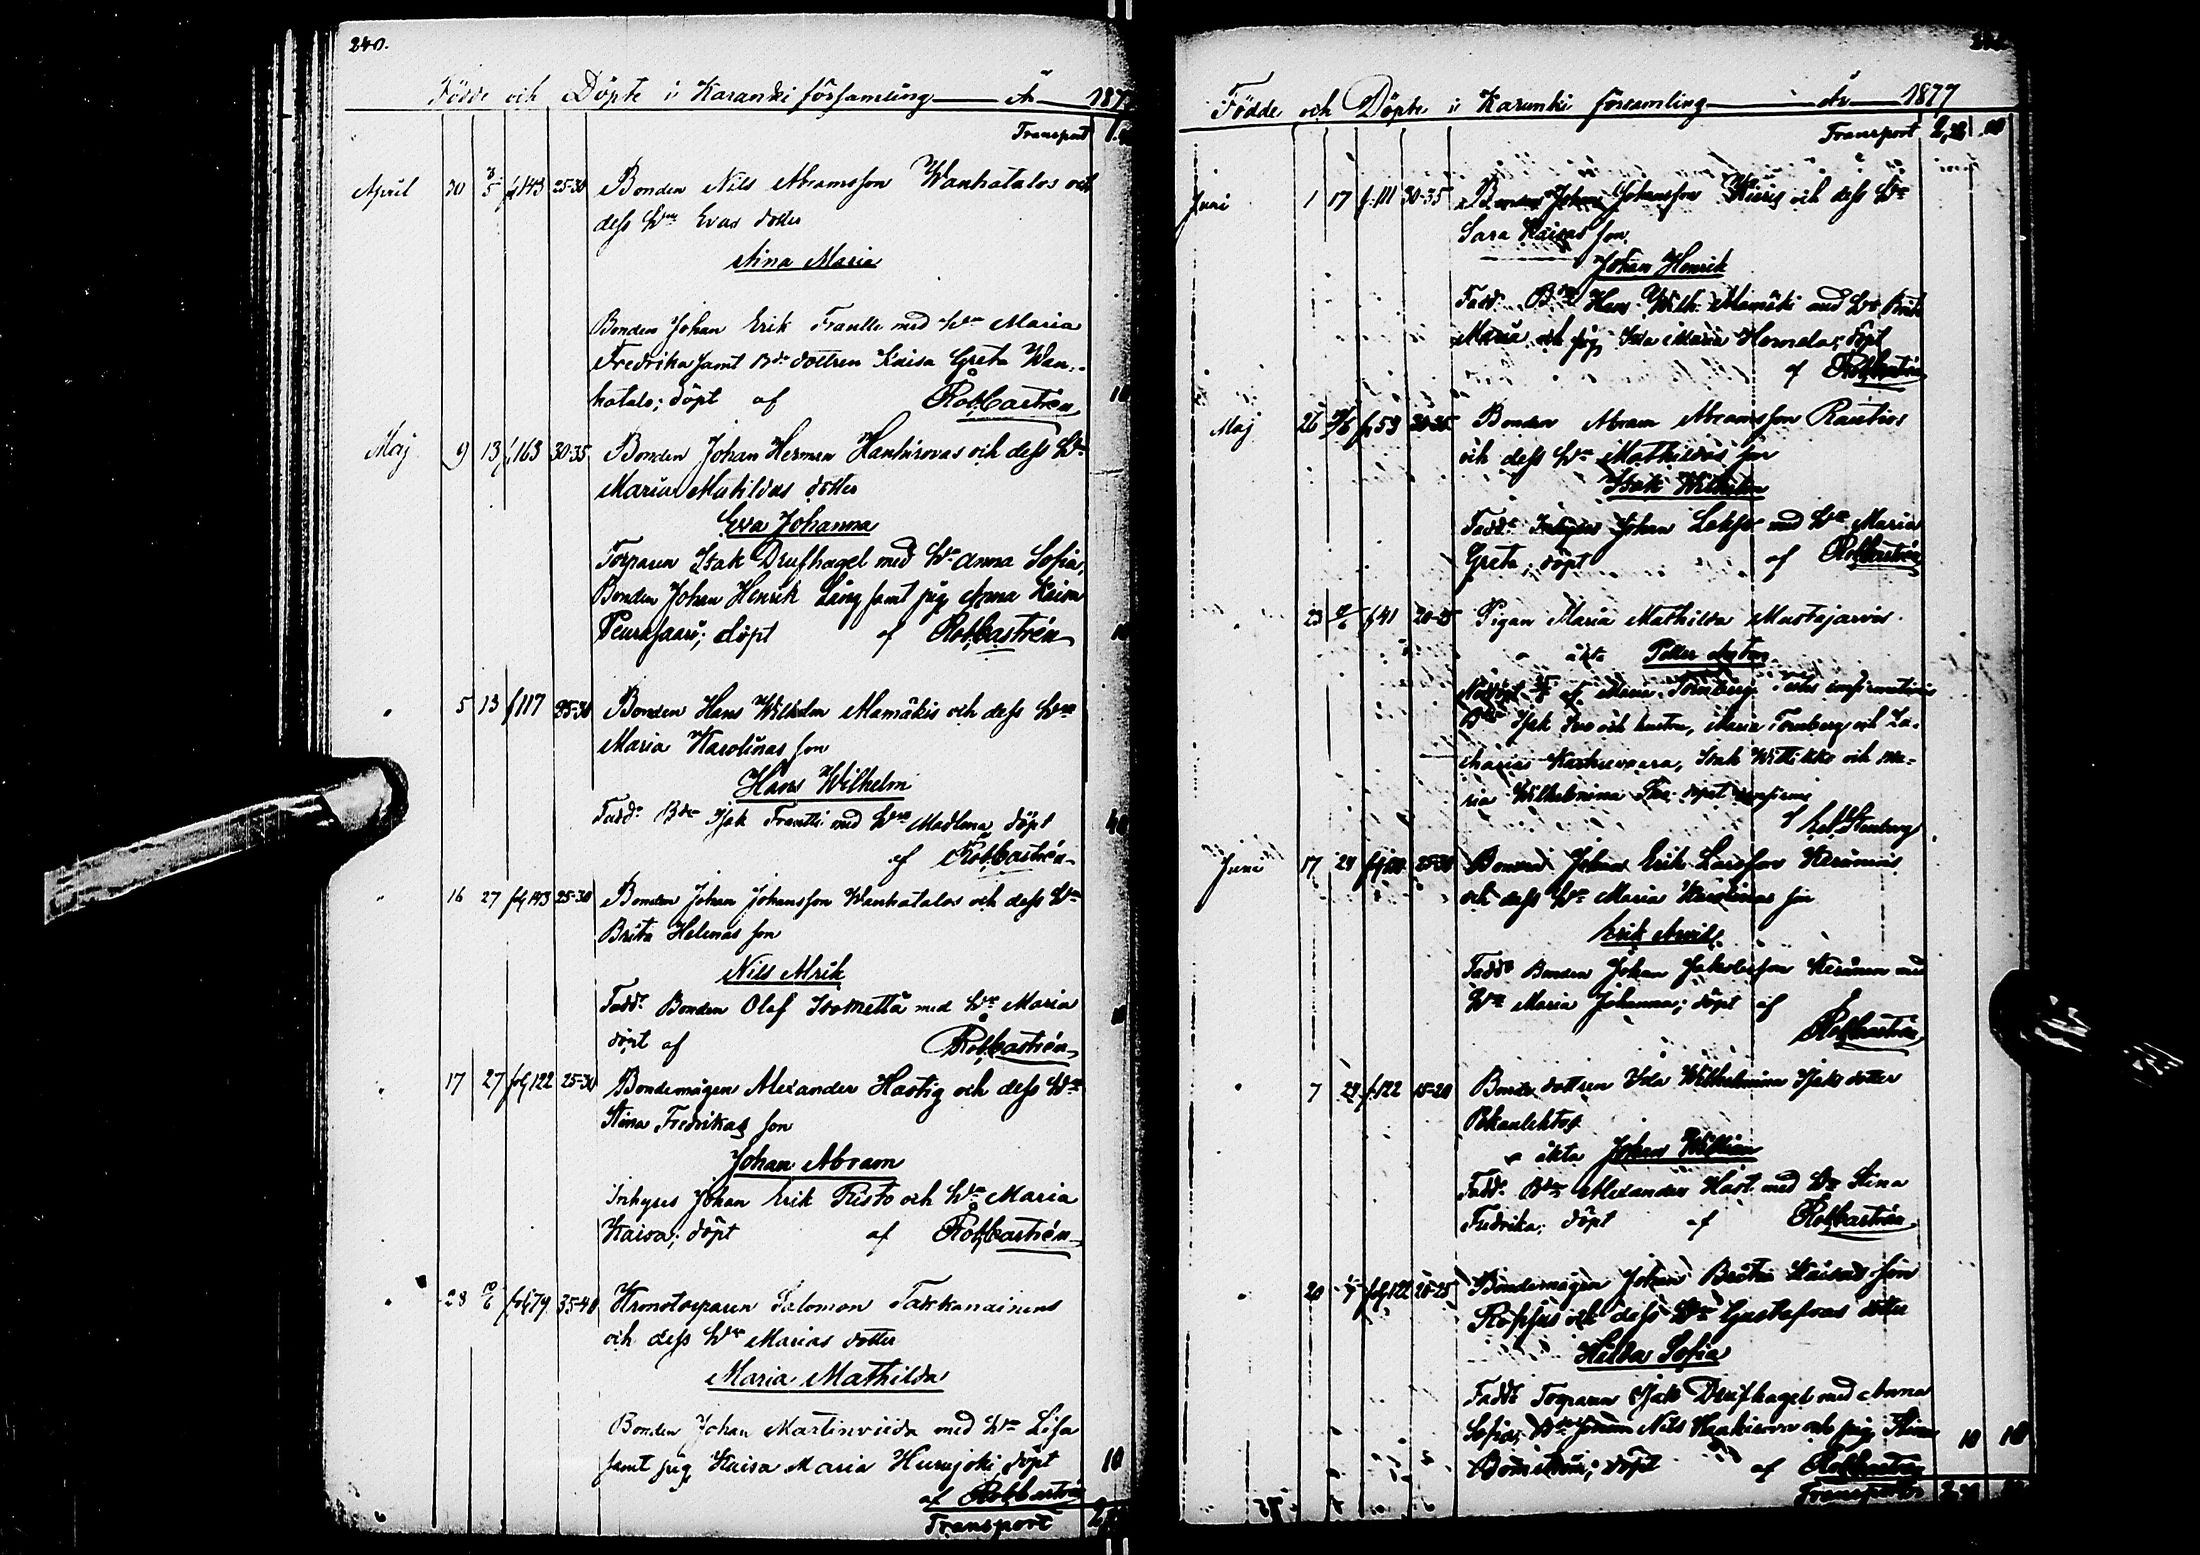 240.
Födde och Döpte i Karunki församling År 187
Transport
April 30 3/5 f 143 25-30 Bonden Nils Abramsson Wanhatalos och
dess H:u Evas dotter
Stina Maria
Bonden Johan Erik Frantti med H:u Maria
Fredrika samt B:de dottren Kaisa Greta Wan-
hatalo; döpt af Rob. Castrén 10
Maj 9 13 f 163 30-35 Bonden Johan Herman Hankirovas och dess H:u
Maria Matildas dotter
Eva Johanna
Torparen Isak Drufhagel med H:u Anna Sofia,
Bonden Johan Henrik Lång samt pig. Anna Kaisa
Peurasaari; döpt af Rob. Castrén 10
" 5 13 f 117 25-30 Bonden Hans Wilhelm Alamäkis och dess H:u
Maria Karolinas son
Hans Wilhelm
Fadd. B:de Isak Frantti med H:u Madlena, döpt
af Rob. Castrén
" 16 27 fol 143 25-30 Bonden Johan Johansson Wanhatalos och dess H:u
Brita Helenas son
Nils Alrik
Fadd. Bonden Olof Isometsä med H:u Maria
döpt af Rob. Castrén
" 17 27 fol 122 25-30 Bondemågen Alexander Hastig och dess H:u
Stina Fredrikas son
Johan Abram
Inhyses Johan Erik Risto och H:u Maria
Kaisa; döpt af Rob. Castrén
" 28 10/6 fol 79 35-40 Kronotorparen Salomon Taskanainens
och dess H:u Marias dotter
Maria Mathilda
Bonden Johan Martinviida med H:u Lisa
samt pig. Kaisa Maria Hurujoki, döpt 10
af Rob. Castrén
Transport
Födde och Döpte i Karunki församling År 1877
Transport
Juni 1 17 f. 111 30-35 Bonden Johan Johansson och dess H:u
Sara Kaisas son
Johan Henrik
Fadd. B:de Hans Wilh. Alamäki med H:u
Maria och pig. Ida Maria; döpt
af Rob. Castrén
Maj 26 f 53 30-35 Bonden Abram Abramsson Rautios
och dess H:u Mathildas son
Isak Wilhelm
Fadd. Inhyses Johan med H:u Maria
Greta; döpt af Rob. Castrén
23 f 41 20-25 Pigan Maria Mathilda Mustajärvis
o äkta Petter Anton
Nöddöpt af Maria Tornberg
Isak och hustru, Maria Tornberg och Za-
charias, Isak Wittikko och Ma-
ria Wilhelmina döpt
af
Juni 17 24 25-30 Bonden Johan Erik Larssons Keränens
och dess H:u Maria Karolinas son
Erik Arvid
Fadd. Bonden Johan Jakobsson Keränen med
H:u Maria Johanna; döpt af
Rob. Castrén
" 7 24 f. 122 15-20 Bonde dottren Ida Wilhelmina Isaks dotter
o äkta Johan William
Fadd. B:de Alexander Hast. med H:u Stina
Fredrika; döpt af Rob. Castrén
" 20 fol 122 20-25 Bondemågen Johan Brita Kaisas son
och dess H:u Gustafvas dotter
Hilda Sofia
Fadd. Torparen Isak Drufhagel med Anna
Sofia, Nils Hankirova och pig. Stina 10 10
döpt af Rob. Castrén
Transport